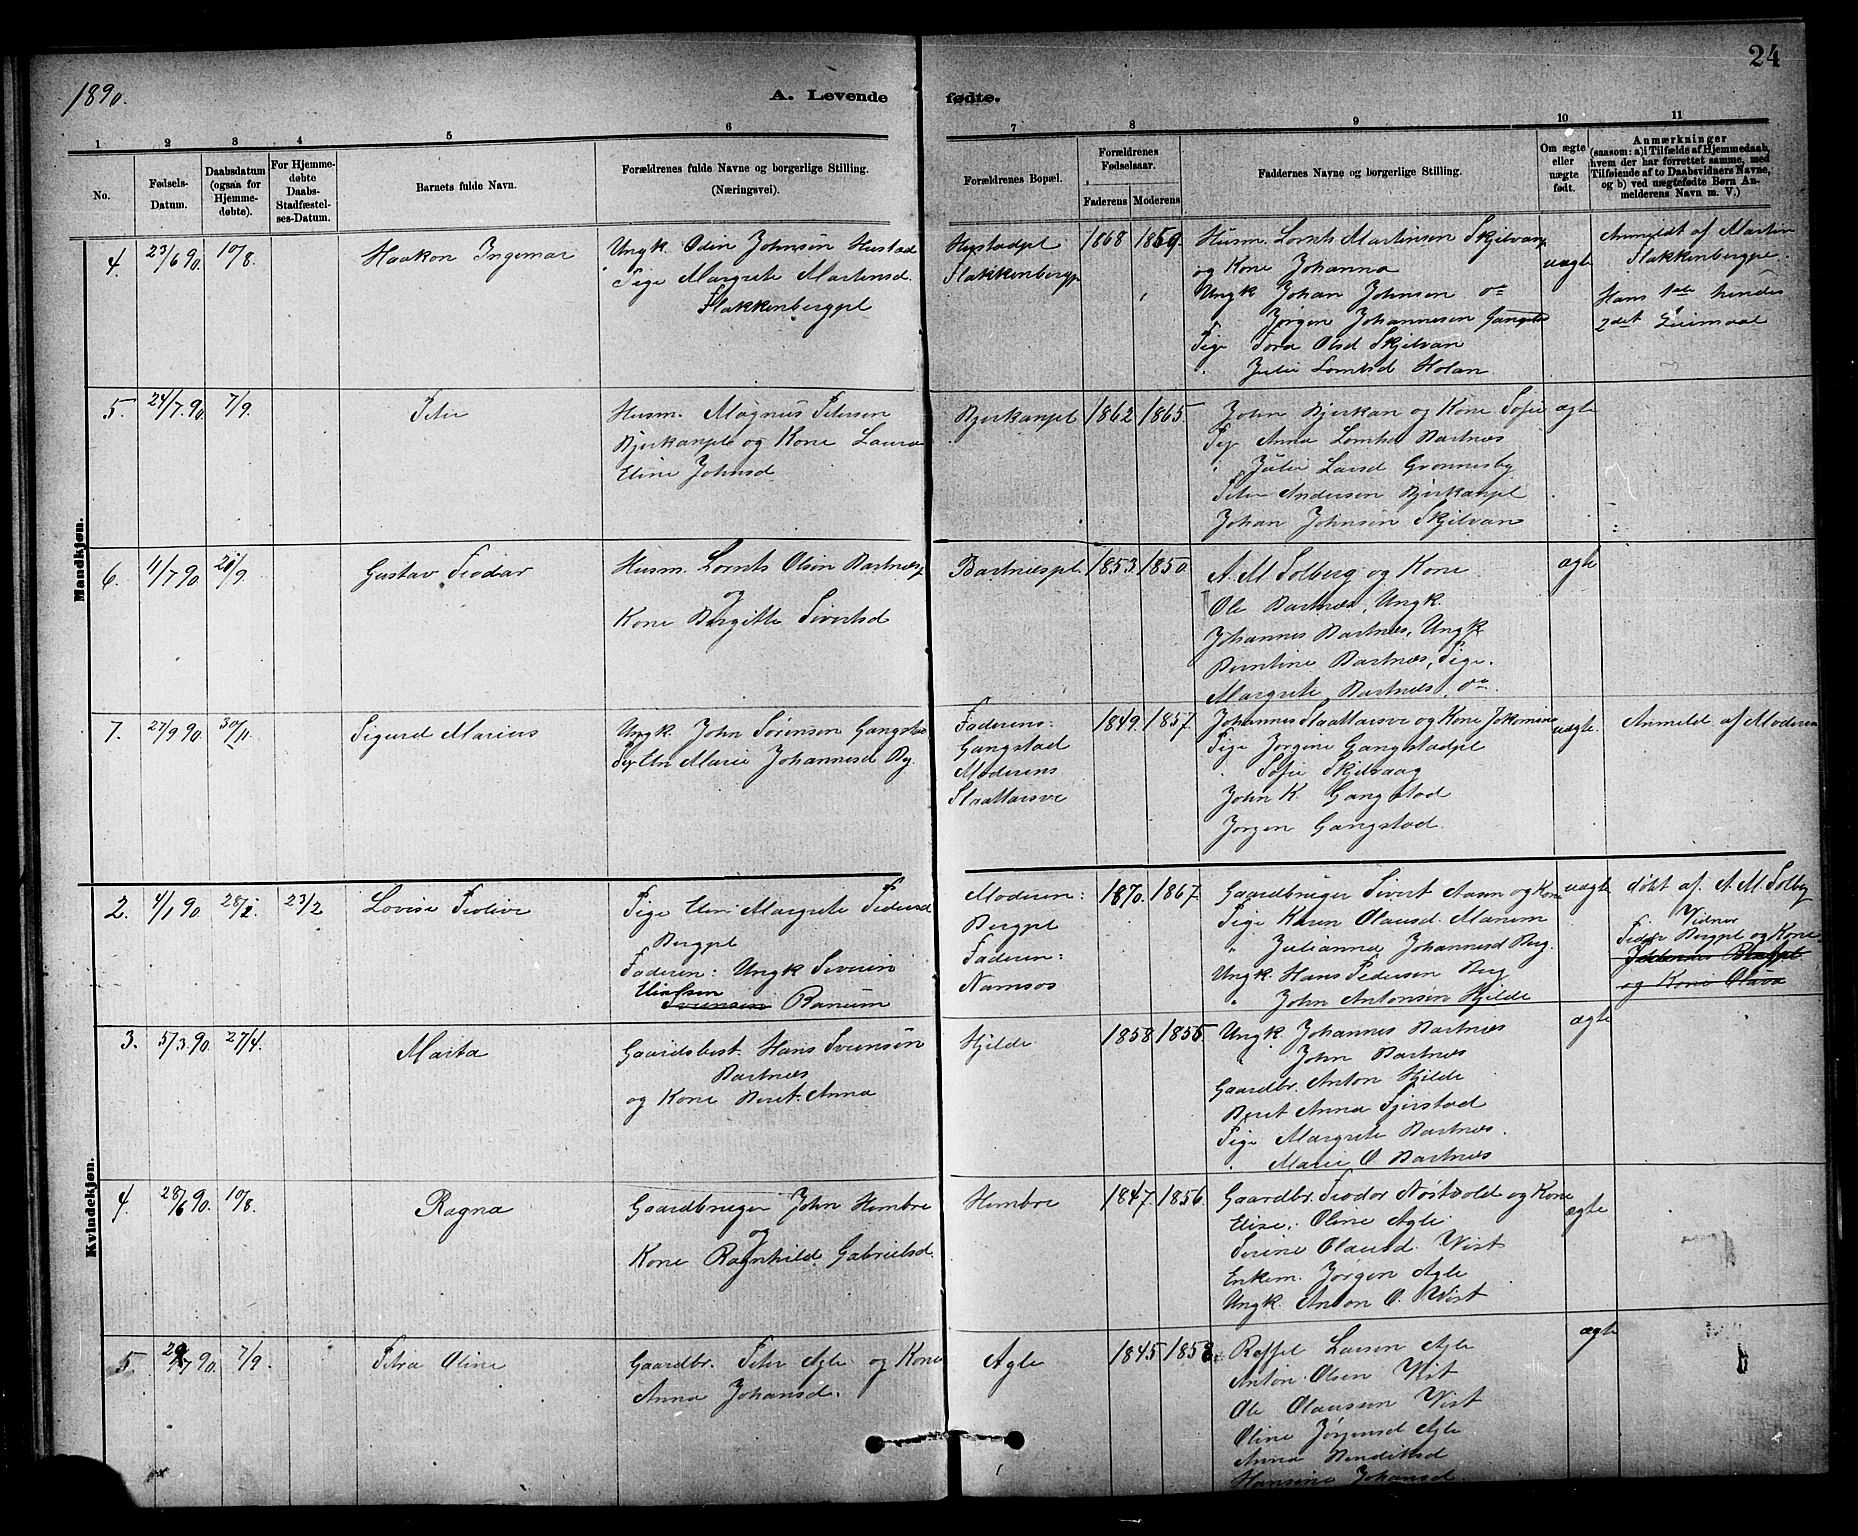 1890.
A. Levende
fødte.
24
1 2 3 4 5 6 7 8 9 10 11
No.
Fødsels-Datum.
Daabsdatum (ogsaa for Hjemme-døbte).
For Hjemme-døbte Daabs-Stadfæstel-ses-Datum.
Barnets fulde Navn.
Forældrenes fulde Navne og borgerlige Stilling. (Næringsvei).
Forældrenes Bopæl.
Forældrenes Fødselsaar.
Faderens Moderens
Faddernes Navne og borgerlige Stilling.
Om ægte eller uægte født.
Anmærkninger (saasom: a) i Tilfælde af Hjemmedaab, hvem der har forrettet samme, med Tilføiende af to Daabsvidners Navne, og b) ved uægtefødte Børn An-melderens Navn m. V.)
Mandkjøn.
4. 23/6 90. 10/8. Haakon Ingemar
Ungk. Odin Johnsen Hustad
Pige Margrete Martinsd.
Flakkenbergpl
Hustadpl
Flakkenbergp.
1868 1859.
Husm. Lornts Martinsen Skjelvan
og Kone Johanna
Ungk Johan Johnsen
Jørgen Johannesen Gangstad
Pige Tora Olsd Skjelvan
" Julie Lorntsd Holan
uægte
Anmeldt af Martin
Flakkenbergpe.
Hans 1ste hendes
2det Leiermaal
5. 24/7 90. 7/9. Peter
Husm. Magnus Petersen
Bjerkanpl og Kone Laura
Eline Johnsd
Bjerkanpl
1862 1865.
John Bjerkan og Kone Sofie
Pig. Anna Lornts Bartnes
" Julie Larsd Grønnesby
Peter Andersen Bjerkanpl
Johan Johnsen Skjelvan
ægte
6. 11/7 90 21/9. Gustav Teodor
Husm. Lornts Olsen Bartnes
og
Kone Birgitte Sivertsd
Bartnespl.
1853. 1850.
A. M. Solberg og Kone
Ole Bartnes, Ungk.
Johannes Bartnes, Ungk
Berntine Bartnes, Pige.
Margrete Bartnes
ægte
7. 27/9 90 30/11. Sigurd Marius
Ungk. John Sørensen Gangstad
Pige Marie Johannesd Berg.
Faderens:
Gangstad
Moderens
Slaattarsve
1849. 1857.
Johannes Slaattarsve og Kone Jokomine
Pige Jørgine Gangstadpl
" Sofie Skjelvaag
John K. Gangstad
Jørgen Gangstad.
uægte.
Anmeld af Moderen
Kvindekjøn.
2. 4/1 90 23/2 Lovise Teoline
Pige Elen Margrete Pedersd
Bergpl
Faderen: Ungk Severin
Eliassen
Svensen Ranum
Moderen:
Bergpl
Faderen:
Namsos
1870. 1867.
Gaardbruger Sivert Aasen og Kone
Pige Karen Olausd Manum
" Julianna Johannesd Berg.
Ungk. Hans Pedersen Berg
" John Antonsen Hjelde
uægte
døbt af A. M. Solberg
Vidner
Peder Bergpl og Kone
og Kone Olava
3. 5/3 90. 27/4. Marta
Gaardsbest. Hans Svensøn
Bartnes
og Kone Beret-Anna
Hjelde
1858 1855
Ungk. Johannes Bartnes
" John Bartnes
Gaardbr. Anton Hjelde
Beret Anna Fjerstad
Pige Margrete Bartnes.
" Marie O. Bartnes
ægte
4. 28/6 90. 10/8. Ragna
Gaardbruger John Hembre
og
Kone Ragnhild Gabrielsd.
Hembre
1847. 1856.
Gaardbr. Teodor Nøstvold og Kone
Elise, Oline Agle
Serine Olausd. Wist
Enkem. Jørgen Agle
Ungk. Anton O. Wist
ægte
5 29/7 90. 7/9. Petra Oline
Gaardbr. Peter Agle og Kone
Anna Johansd.
Agle
1845 1858.
Raffel Larsen Agle
Anton Olsen Wist
Ole Olausen Wist
Oline Jørgensd Agle
Anna Bendiksd
Hansine Johansd.
ægte